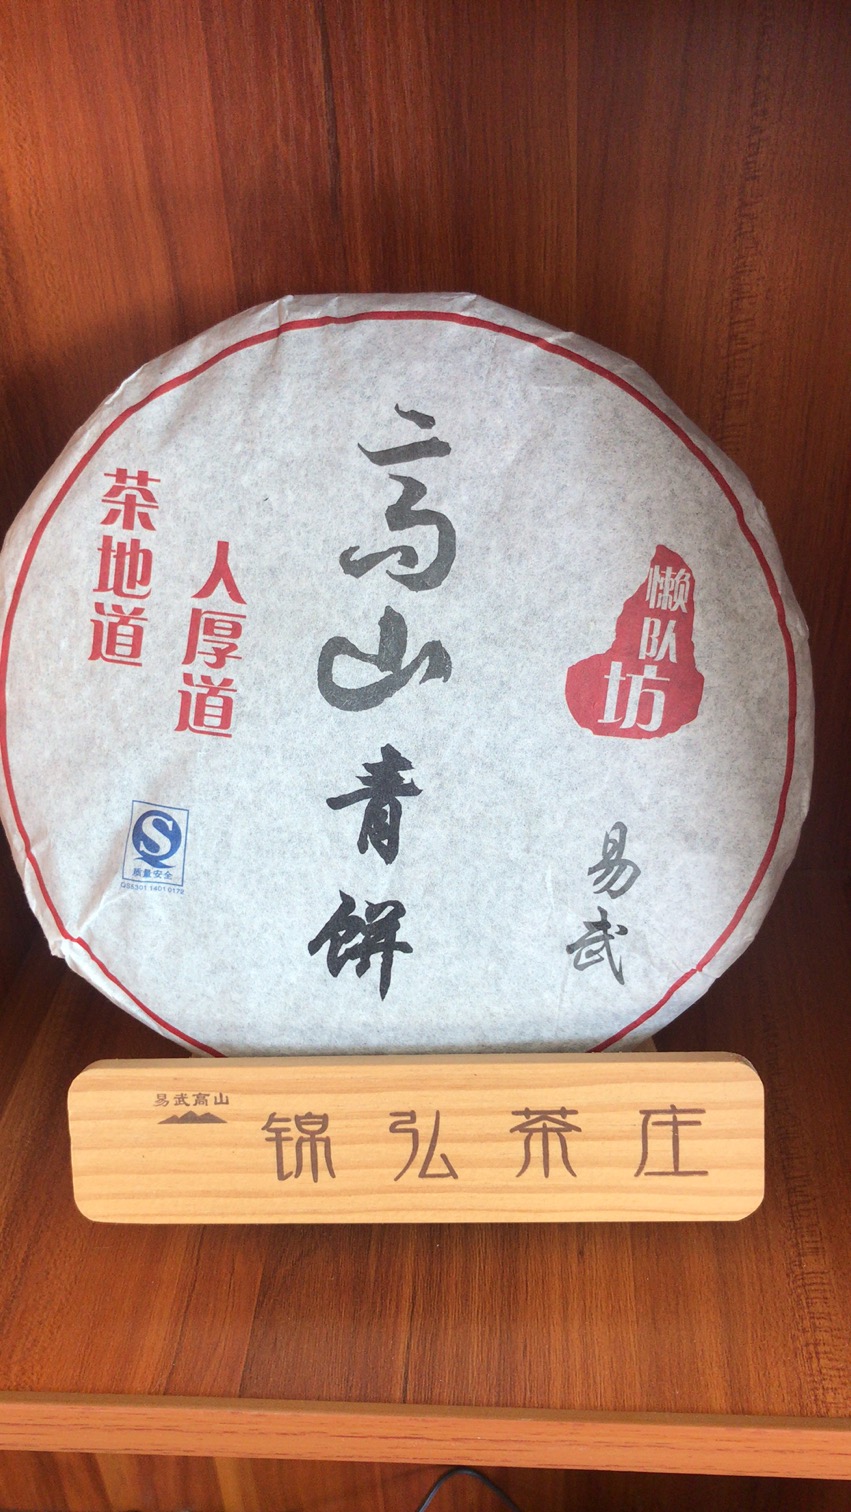 懒队坊
易武
高山青饼
人厚道
茶地道
质量安全
QS5301 1401 0172
易武高山
锦弘茶庄